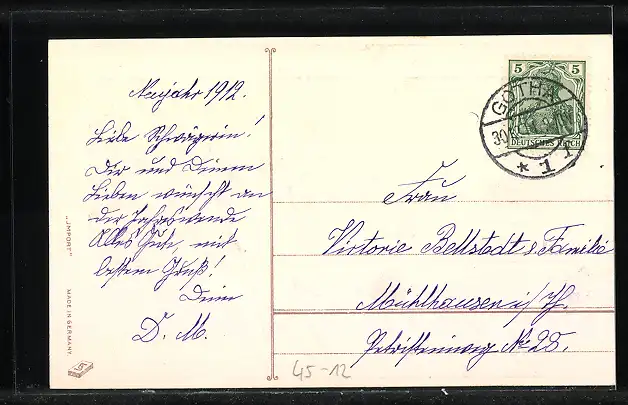 Neujahr 1912.
Liebe Schwägerin!
Dir und Deinen
Lieben wünscht an
der Jahreswende
Alles Gute, mit
bestem Gruß!
Deine
D. M.
5 5
DEUTSCHES REICH
GOTHA
30
1
Frau
Victorie Bellstedt u. Familie
Mühlhausen i/Th.
No 28.
"IMPORT"
MADE IN GERMANY
45-12